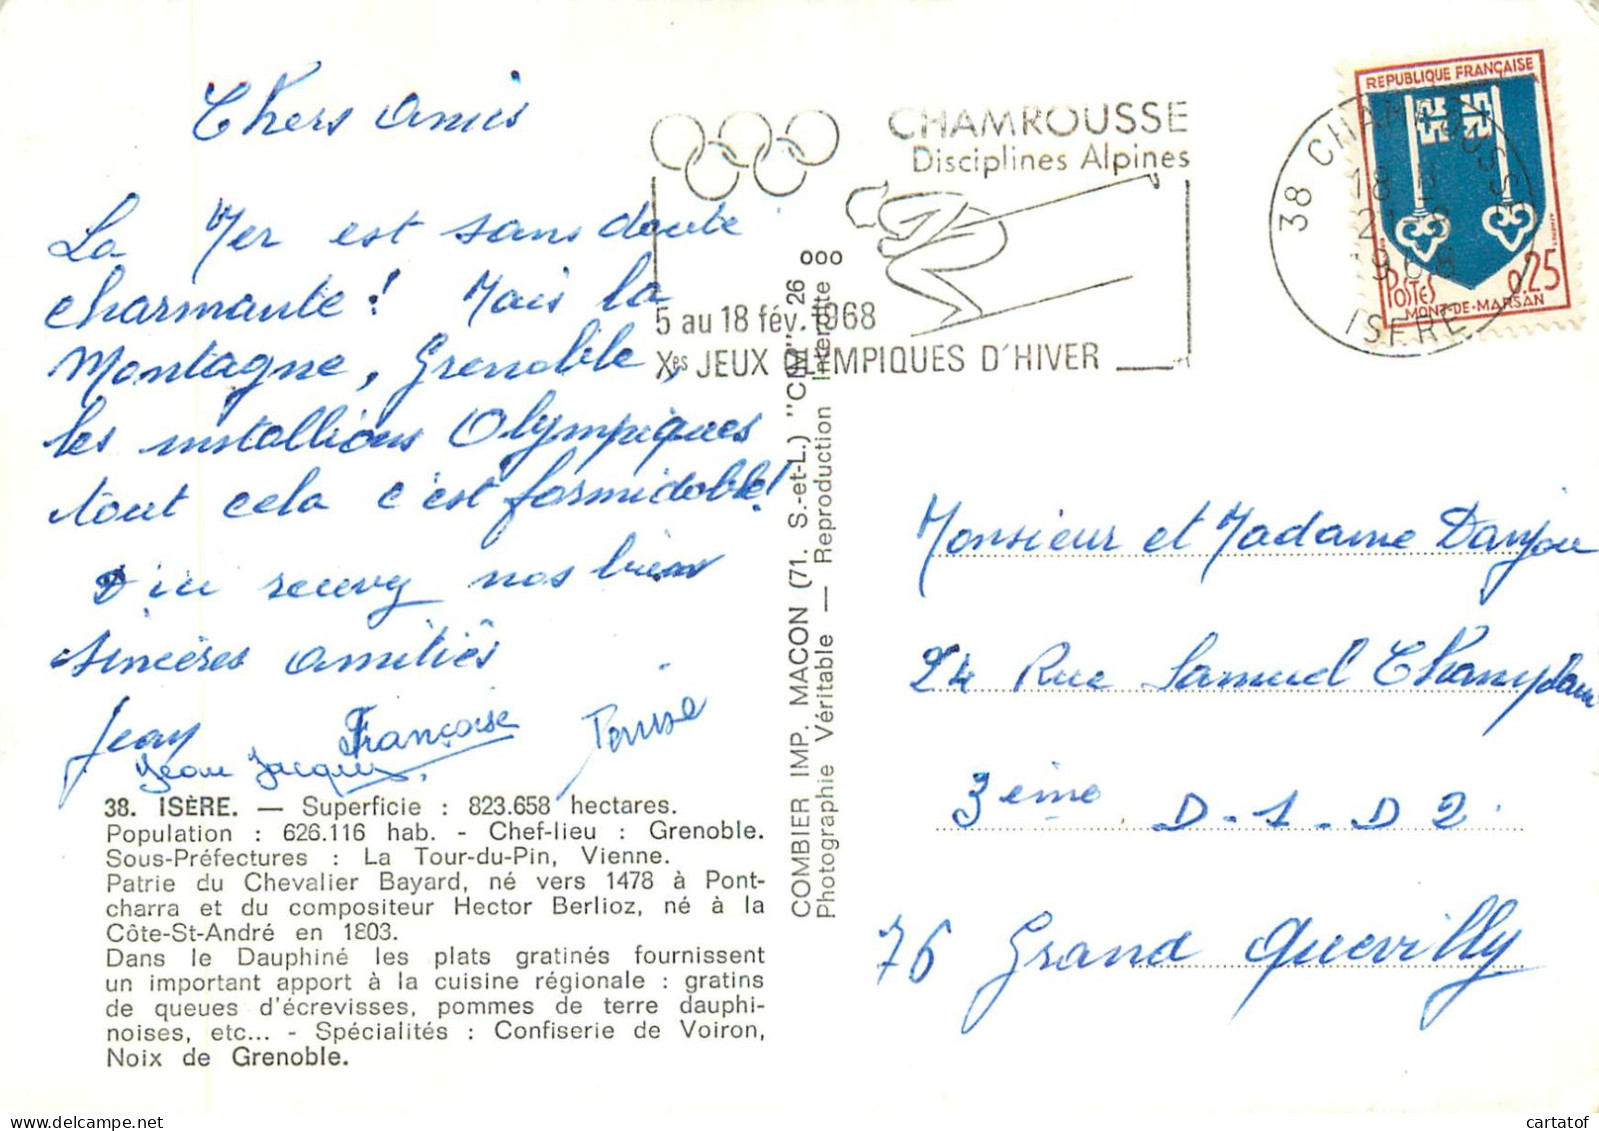 Chers amis
La Mer est sans doute
charmante! Mais la
Montagne, Grenoble,
les installions Olympiques
tout cela c'est formidable!
recevez nos biens
sincères amitiés
Jean Françoise Denise
Jean Jacques.
38. ISÈRE. — Superficie : 823.658 hectares.
Population : 626.116 hab. - Chef-lieu : Grenoble.
Sous-Préfectures : La Tour-du-Pin, Vienne.
Patrie du Chevalier Bayard, né vers 1478 à Pont-
charra et du compositeur Hector Berlioz, né à la
Côte-St-André en 1803.
Dans le Dauphiné les plats gratinés fournissent
un important apport à la cuisine régionale : gratins
de queues d'écrevisses, pommes de terre dauphi-
noises, etc... - Spécialités : Confiserie de Voiron,
Noix de Grenoble.
COMBIER IMP. MACON (71. S.-et-L.) "CIM" 26
Photographie Véritable — Reproduction Interdite
CHAMROUSSE
Disciplines Alpines
5 au 18 fév. 1968
Xes JEUX OLYMPIQUES D'HIVER
REPUBLIQUE FRANÇAISE
POSTES 0,25
MONT-DE-MARSAN
38 CHAMROUSSE
18 H
1968
ISERE
Monsieur et Madame Danjou
24 Rue Samuel Champlain
3ème D-1-D2.
76 Grand Quevilly
cartatof